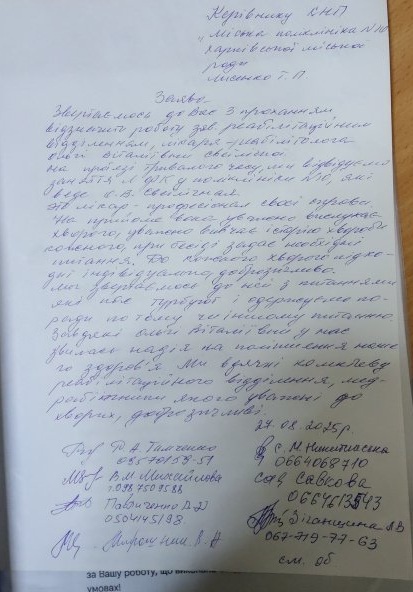 Керівнику КНП
"Міська поліклініка №10
Харківської міської
ради
Лисенко Т. П.
Заява.
Звертаємось до Вас з проханням
відзначити роботу зав. реабілітаційним
відділенням, лікаря-реабілітолога
Ольгу Віталіївну
На протязі тривалого часу, ми відвідуємо
заняття ЛФК у поліклініки №10, які
веде О. В.
Це лікар - професіонал своєї справи.
На прийомі вона уважно вислухає
хворого, уважно вивчає історію хвороби
кожного, при бесіді задає необхідні
питання. До кожного хворого підхо-
дить індивідуально, доброзичливо.
Ми звертаємось до неї з питаннями
які нас турбують і одержуємо по-
ради по тому чи іншому питанню.
Завдяки Ользі Віталіївні у нас
з'явилась надія на поліпшення нашо-
го здоров'я. Ми вдячні колективу
реабілітаційного відділення, мед-
робітники якого уважні до
хворих, доброзичливі.
27.08.2025р.
Р А Ткаченко
В М Михайлова
т.0987509588
Павличенко Л Д
0504145198
Мирошник В. А
Є. М Никитчаєнка
0664068710
Савкова
0664613543
Зіганшина Л В
067-719-77-63
см. об
за Вашу роботу, що
умовах!